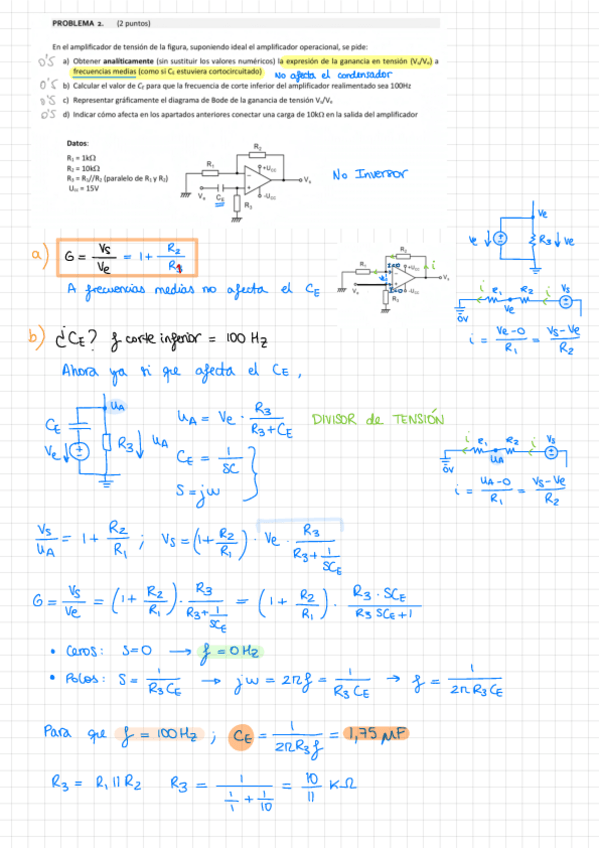 PROBLEMA 2. (2 puntos)
En el amplificador de tensión de la figura, suponiendo ideal el amplificador operacional, se pide:
0'5 a) Obtener analíticamente (sin sustituir los valores numéricos) la expresión de la ganancia en tensión (Vs/Ve) a
frecuencias medias (como si CE estuviera cortocircuitado) No afecta el condensador
0'5 b) Calcular el valor de CE para que la frecuencia de corte inferior del amplificador realimentado sea 100Hz
0'5 c) Representar gráficamente el diagrama de Bode de la ganancia de tensión Vs/Ve
0'5 d) Indicar cómo afecta en los apartados anteriores conectar una carga de 10kΩ en la salida del amplificador
Datos:
R1 = 1kΩ
R2 = 10kΩ
R3 = R1//R2 (paralelo de R1 y R2)
Ucc = 15V
R2
R1
+Ucc
Vs
-Ucc
Ve CE
R3
No Inversor
Ve
Ve R3 Ve
a) G = Vs/Ve = 1 + R2/R1
A frecuencias medias no afecta el CE
i R1 R2 i Vs
0V Ve
i = Ve-0/R1 = Vs-Ve/R2
b) ¿CE? f corte inferior = 100 Hz
Ahora ya si que afecta el CE,
CE UA
Ve R3 UA
UA = Ve · R3/R3+CE DIVISOR de TENSIÓN
CE = 1/SC
S = jw
i R1 R2 i Vs
0V UA
i = UA-0/R1 = Vs-Ve/R2
Vs/UA = 1 + R2/R1 ; Vs = (1+R2/R1) · Ve · R3/R3+1/SCE
G = Vs/Ve = (1 + R2/R1) · R3/R3+1/SCE = (1 + R2/R1) · R3 · SCE/R3 SCE+1
• Ceros: S=0 → f = 0Hz
• Polos: S = 1/R3CE → jw = 2πf = 1/R3 CE → f = 1/2π R3 CE
Para que f = 100Hz ; CE = 1/2πR3f = 1,75 μF
R3 = R1 || R2 R3 = 1/1/1 + 1/10 = 10/11 KΩ